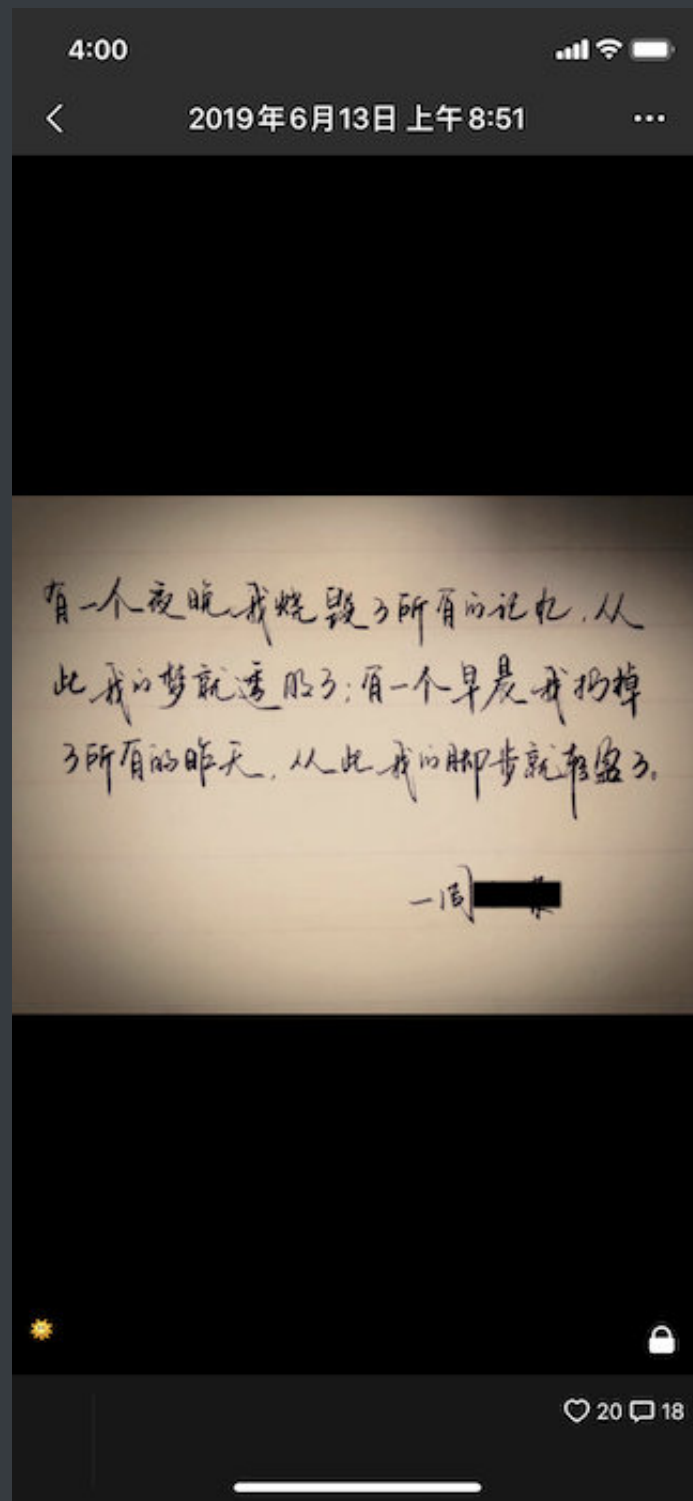 4:00
2019年6月13日 上午8:51
有一个夜晚我烧毁了所有的记忆,从
此我的梦就透明了;有一个早晨我扔掉
了所有的昨天,从此我的脚步就轻盈了。
一周
20 18